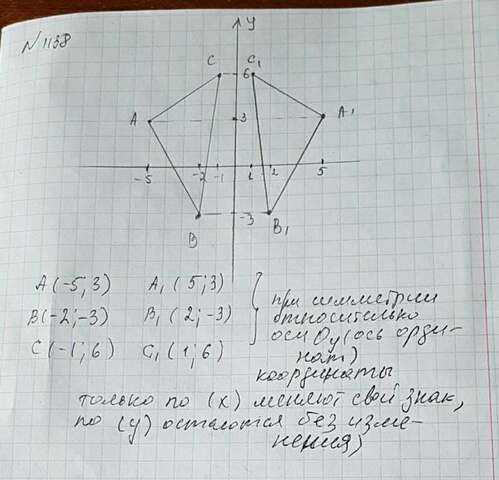 N 1138
y
C C₁
6
A 3 A₁
-5 -2 -1 1 2 5
-3
B B₁
A(-5; 3) A₁(5; 3)
B(-2; -3) B₁(2; -3)
C(-1; 6) C₁(1; 6)
при симметрии
относительно
оси Oy (ось орди-
нат)
координаты
только по (x) меняют свой знак,
по (y) остаются без изме-
нения)